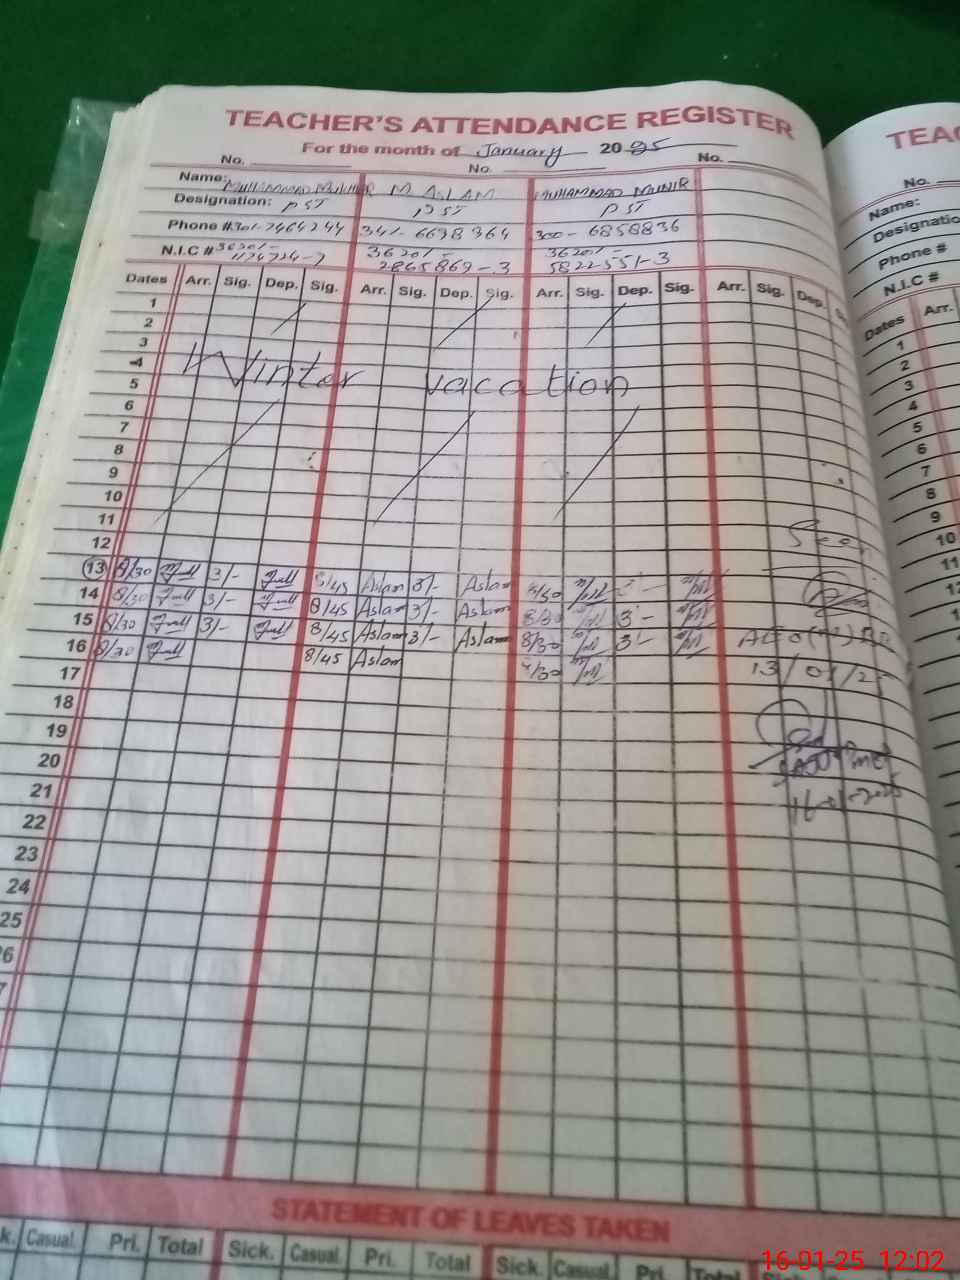 TEACHER'S ATTENDANCE REGISTER
For the month of January 2025
No. No. No.
Name: M ASLAM MUHAMMAD MUNIR
Designation: PST PST PST
Phone # 301-7464244 341-6698364 300-6858836
N.I.C # 36201- 36201- 36201-
2865869-3 5822551-3
Dates Arr. Sig. Dep. Sig. Arr. Sig. Dep. Sig. Arr. Sig. Dep. Sig. Arr. Sig. Dep.
1
2
3
4
5
Winter vacation
6
7
8
9
10
11
12
Seen
13 8/30 3/- 8/45 Aslam 3/- Aslam 8/30 3/-
14 8/30 3/- 8/45 Aslam 3/- Aslam 8/30 3/-
15 8/30 3/- 8/45 Aslam 3/- Aslam 8/30 3/-
16 8/30 8/45 Aslam 8/30
13/01/25
17
18
19
20
21
16-01-2025
22
23
24
25
26
7
STATEMENT OF LEAVES TAKEN
k. Casual Pri. Total Sick. Casual Pri. Total Sick. Casual Pri. Total
TEAC
No.
Name:
Designatio
Phone #
N.I.C #
Dates Arr.
1
2
3
4
5
6
7
8
9
10
11
12
1
16-01-25 12:02